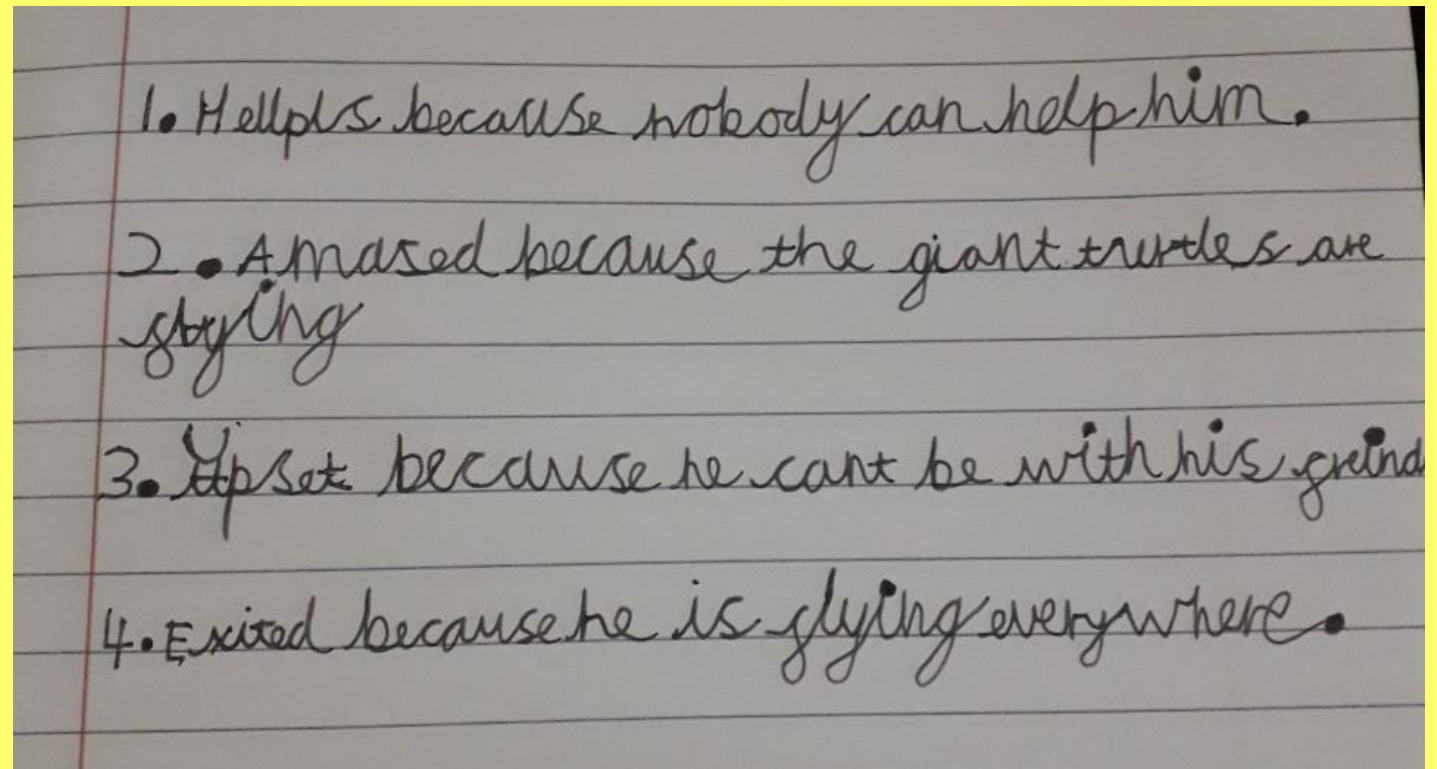 1. Hellpls because nobody can help him.
2. Amased because the giant turtles are
flying
3. Upset because he cant be with his freind
4. Exited because he is flying everywhere.